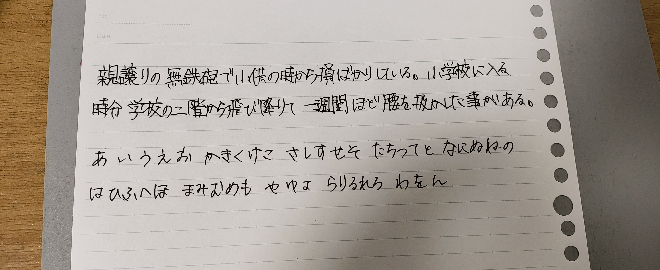 親譲りの無鉄砲で小供の時から損ばかりしている。小学校に入る
時分学校の二階から飛び降りて一週間ほど腰を抜かした事がある。
あいうえお かきくけこ さしすせそ たちつてと なにぬねの
はひふへほ まみむめも やゆよ らりるれろ わをん